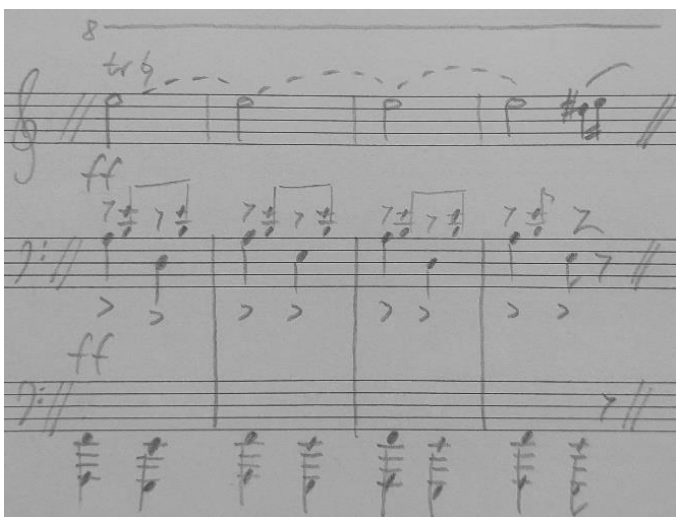 8
tr
ff
ff